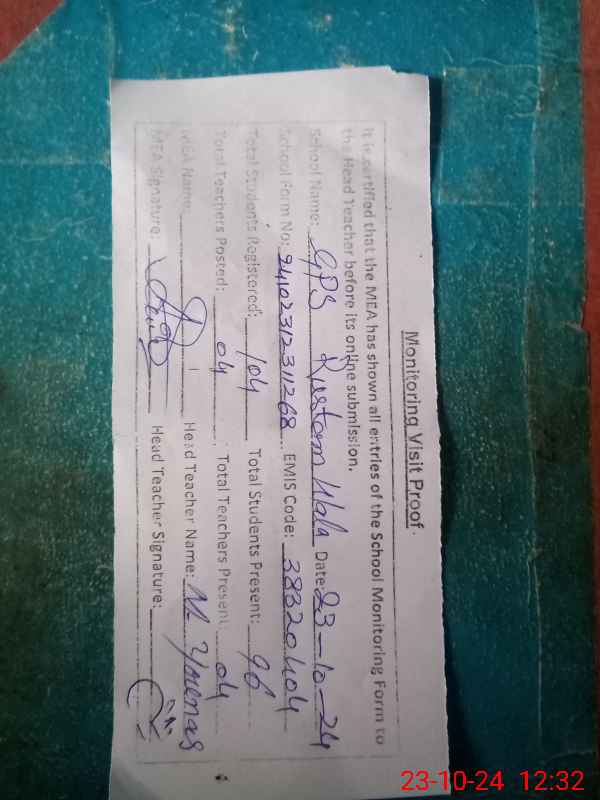 Monitoring Visit Proof
It is certified that the MEA has shown all entries of the School Monitoring Form to
the Head Teacher before its online submission.
School Name: GPS Rustam Wala Date: 23-10-24
School Form No: 24102312311268 EMIS Code: 38320404
Total Students Registered: 104 Total Students Present: 96
Total Teachers Posted: 04 Total Teachers Present: 04
MEA Name: Head Teacher Name: M
MEA Signature: Head Teacher Signature:
23-10-24 12:32